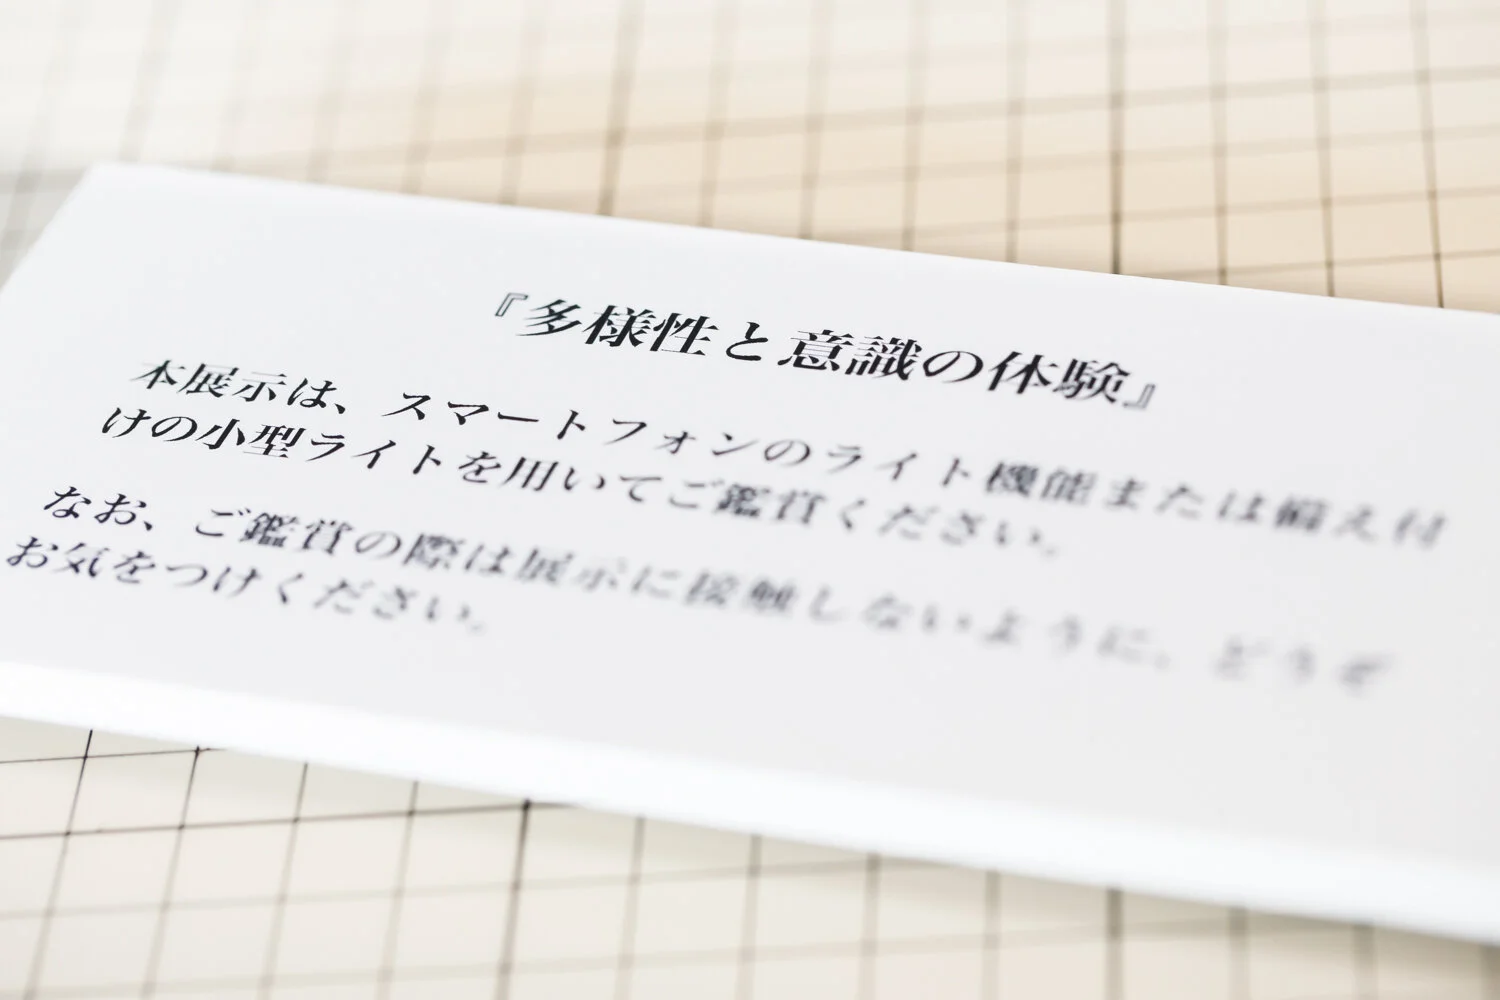 『多様性と意識の体験』
本展示は、スマートフォンのライト機能または備え付
けの小型ライトを用いてご鑑賞ください。
なお、ご鑑賞の際は展示に接触しないように、どうぞ
お気をつけください。